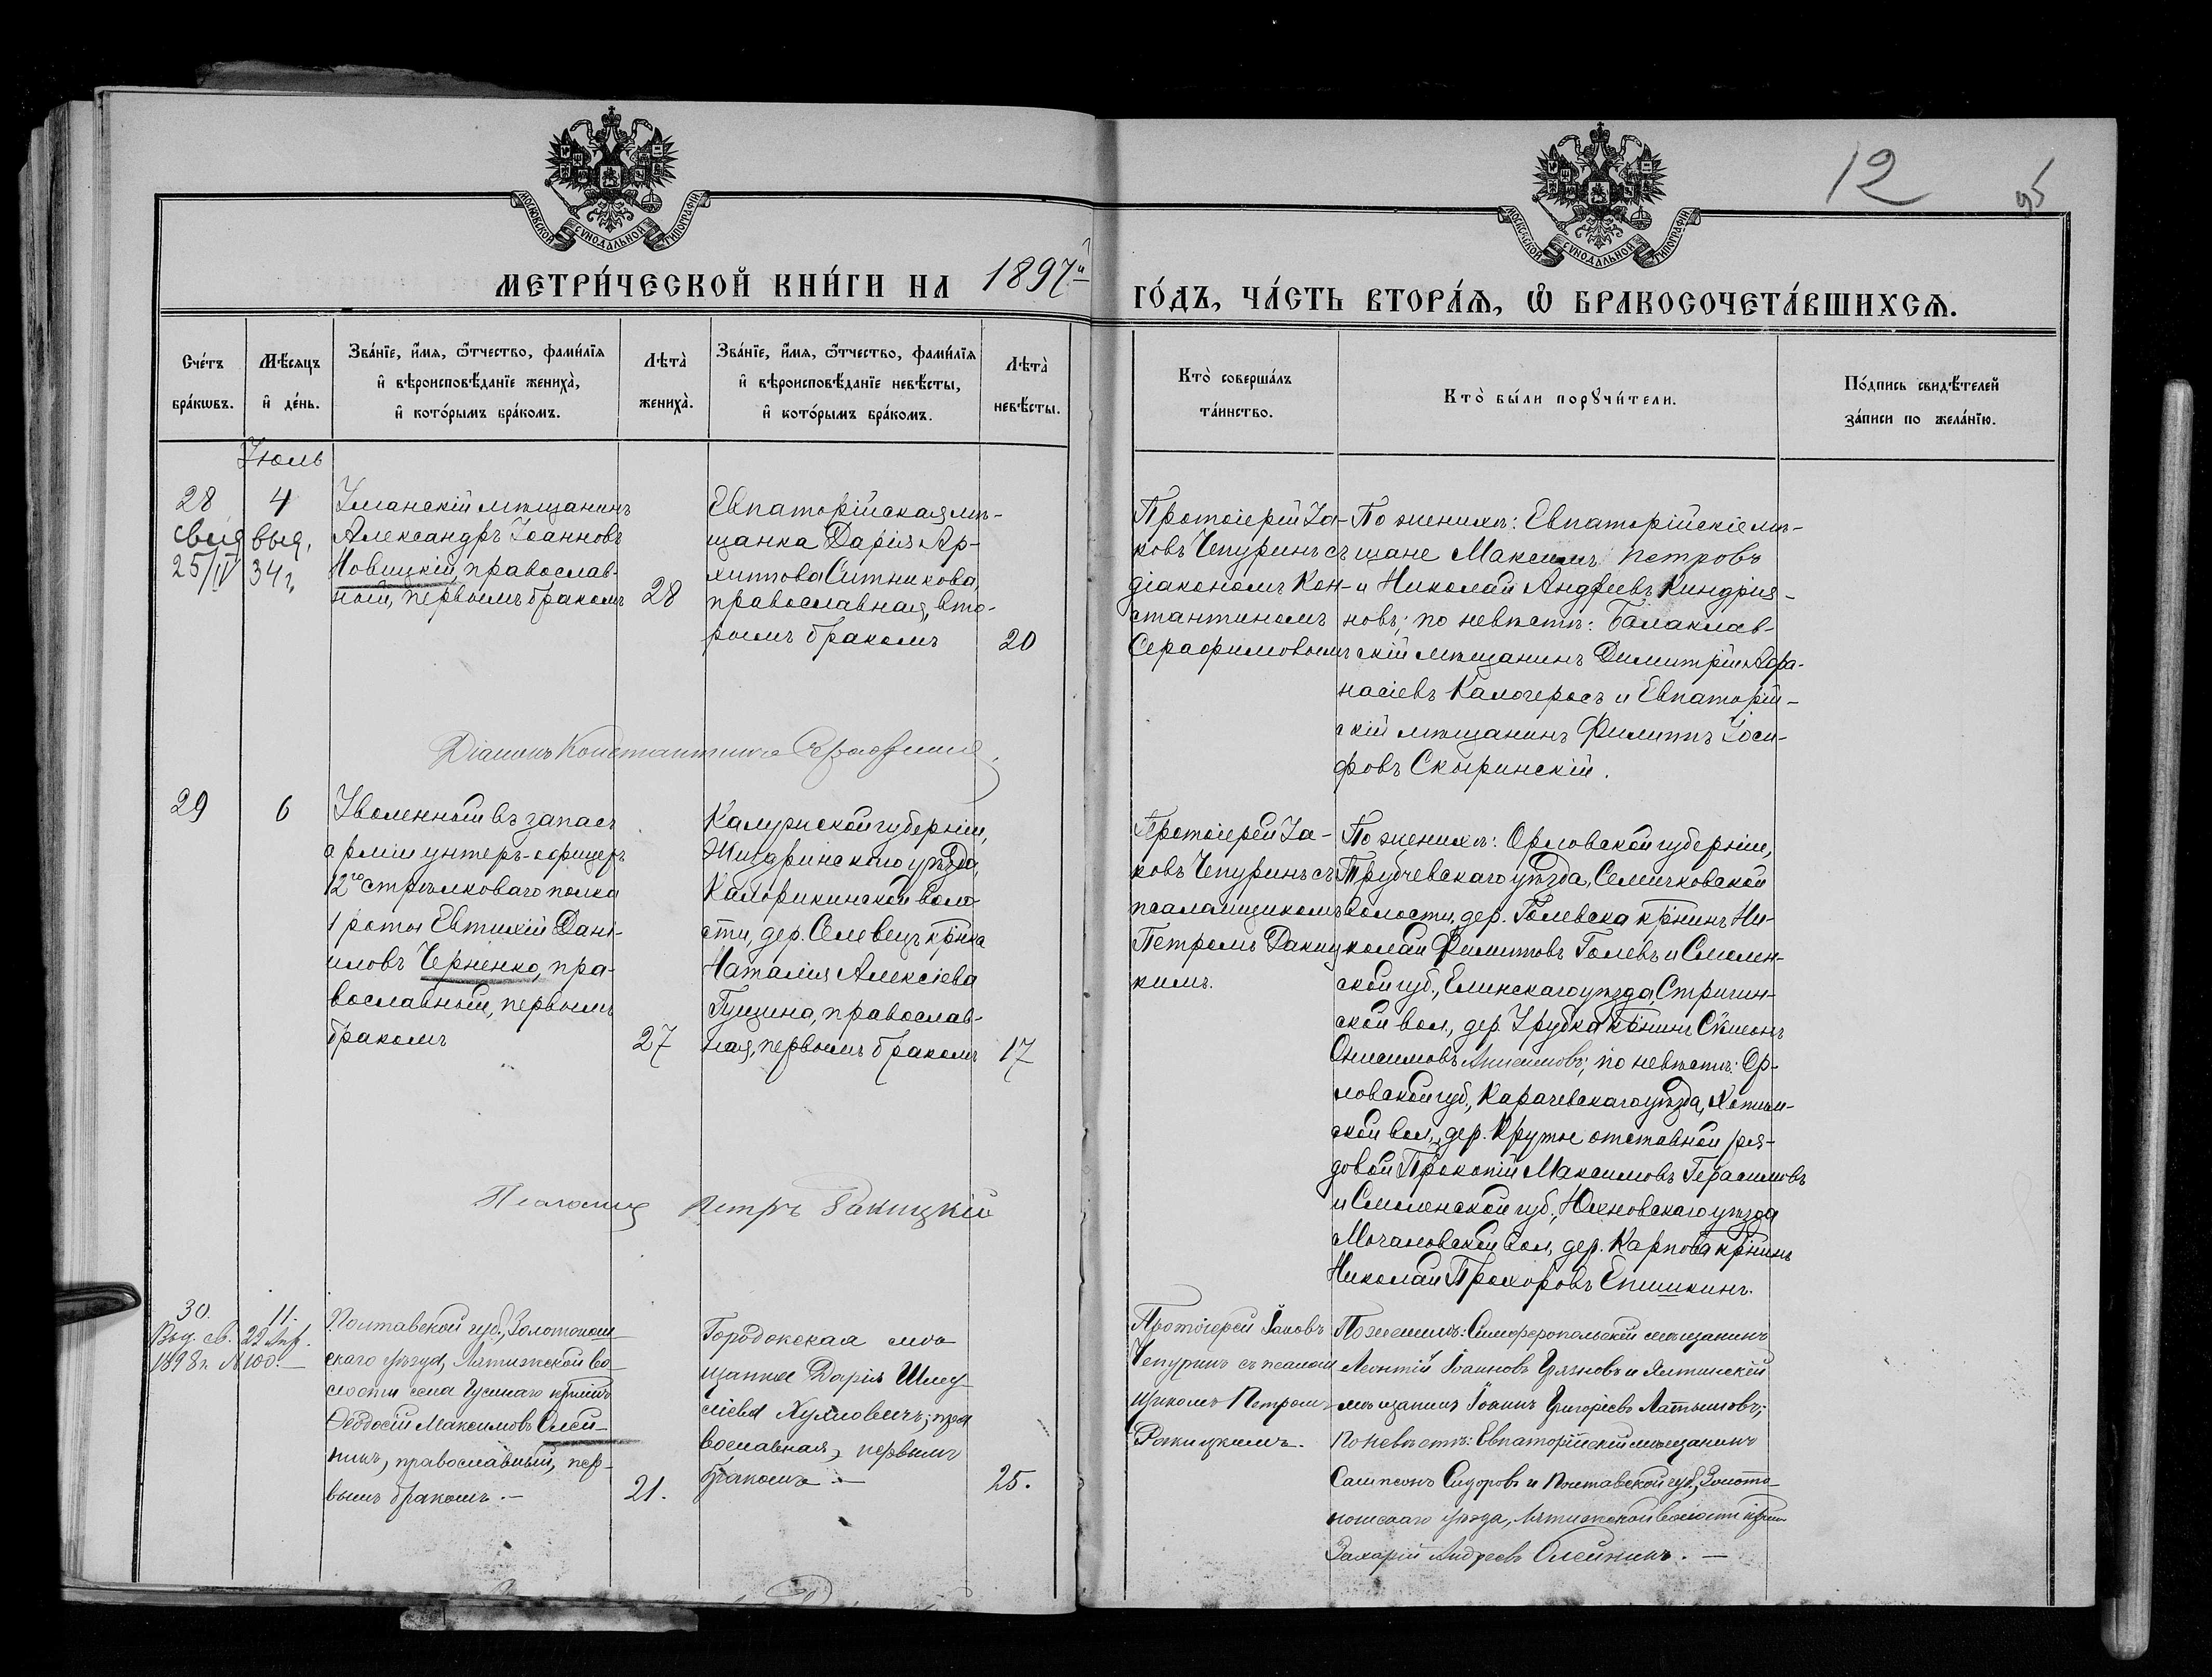 12
95
МОСКОВСКОЙ СѴНОДАЛЬНОЙ ТИПОГРАФІИ
МОСКОВСКОЙ СѴНОДАЛЬНОЙ ТИПОГРАФІИ
МЕТРИ́ЧЕСКОЙ КНИ́ГИ НА 1897й
ГО́ДЪ, ЧА́СТЬ ВТОРА́Я, Ѿ БРАКОСОЧЕТА́ВШИХСѦ.
Сче́тъ
бра́кѡвъ.
Мѣ́сяцъ
и҆ де́нь.
Зва́нїе, и҆́мя, ѻ҆́тчество, фами́лїя
и҆ вѣроисповѣ́данїе жениха̀,
и҆ кото́рымъ бра́комъ.
Лѣта̀
жениха̀.
Зва́нїе, и҆́мя, ѻ҆́тчество, фами́лїя
и҆ вѣроисповѣ́данїе невѣ́сты,
и҆ кото́рымъ бра́комъ.
Лѣта̀
невѣ́сты.
Кто̀ соверша́лъ
та́инство.
Кто̀ бы́ли порꙋчи́тели.
По́дпись свидѣ́телей
за́писи по жела́нїю.
Іюль
28
свид
25/IV
4
выд.
34 г.
Уманскій мѣщанинъ
Александръ Іоанновъ
Новицкій, православ-
ный, первымъ бракомъ
28
Евпаторійская мѣ-
щанка Дарія Ар-
хиппова Ситникова,
православная, вто-
рымъ бракомъ
20
Протоіерей Іа-
ковъ Чепуринъ съ
діакономъ Кон-
стантиномъ
Серафимовымъ
По женихѣ: Евпаторійскіе мѣ-
щане Максимъ Петровъ
и Николай Андреевъ Киндрія-
новъ; по невѣстѣ: Балаклав-
скій мѣщанинъ Димитрій Афа-
насіевъ Калогерасъ и Евпаторій-
скій мѣщанинъ Филиппъ Іоси-
фовъ Скыринскій.
Діаконъ Константинъ
29
6
Уволенный въ запасъ
арміи унтеръ-офицеръ
12го стрѣлковаго полка
1 роты Евтихій Дані-
иловъ Черненко, пра-
вославный, первымъ
бракомъ
27
Калужской губерніи,
Жиздринскаго уѣзда,
воло-
сти, дер. Селевецъ кр-нка
Наталія Алексіева
Гущина, православ-
ная, первымъ бракомъ
17
Протоіерей Іа-
ковъ Чепуринъ съ
псаломщикомъ
Петромъ Ракиц
кимъ.
По женихѣ: Орловской губерніи,
Трубчевскаго уѣзда, Семячковской
волости, дер. Голевска кр-нинъ Ни-
колай Филипповъ Голевъ и Смолен-
ской губ., Елинскаго уѣзда, Стригин-
ской вол., дер. Урубка кр-нинъ Симеонъ
Онисимовъ Анисимовъ; по невѣстѣ: Ор-
ловской губ., Карачевскаго уѣзда,
ской вол., дер. Крутое отставной ря-
довой Прокопій Максимовъ Герасимовъ
и Смоленской губ., Юхновскаго уѣзда
Мочаловской вол., дер. Карпова кр-нинъ
Николай Прохоровъ Епишкинъ.
Псаломщ Петръ Ракицкій
30.
Выд. св.
1898 г.
11.
22 Апр.
№ 100.
Полтавской губ., Золотонош
скаго уѣзда, Ляпижской во
лости села
Ѳеодосій Максимовъ Олей-
никъ, православный, пер-
вымъ бракомъ.—
21.
Городокская мѣ
щанка Дарія Шму
лева
вославная, первымъ
бракомъ —
25.
Протоіерей Іаковъ
Чепуринъ съ псалом
щикомъ Петромъ
Ракицкимъ.
По женихѣ: Симферопольскій мѣщанинъ
Леонтій Іоанновъ и Ялтинскій
мѣщанинъ Іоаннъ Григоріевъ Латышовъ;
По невѣстѣ: Евпаторійскій мѣщанинъ
Сампсонъ Сидоровъ и Полтавской губ., Золото-
ношскаго уѣзда, волости
Захарій Андреевъ Олейникъ. —